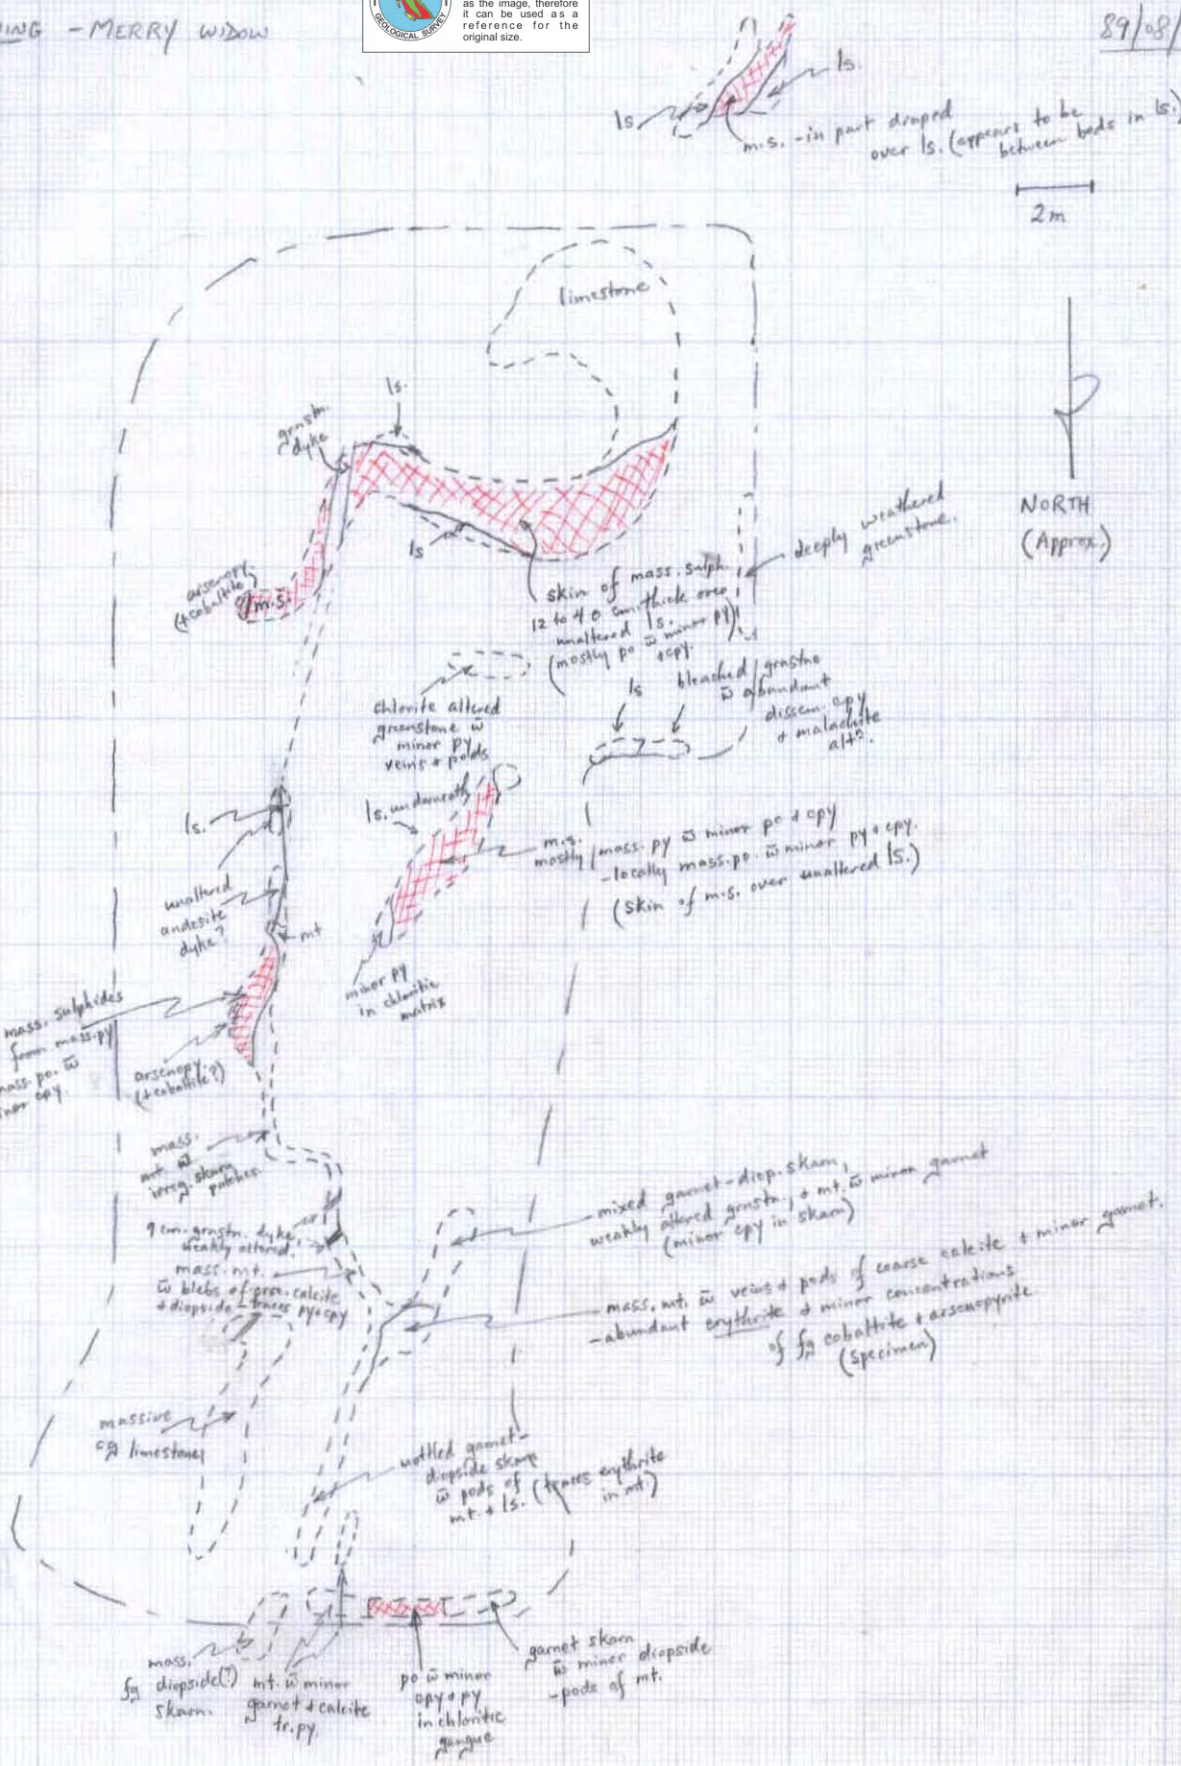 ING - MERRY WIDOW
GEOLOGICAL SURVEY
as the image, therefore
it can be used as a
reference for the
original size.
89/08/
ls.
ls
m.s. - in part draped
over ls. (appears to be
between beds in ls.)
2m
limestone
ls.
grnstn.
dyke
NORTH
(Approx.)
deeply weathered
greenstone.
ls
arsenopy.
(+cobaltite)
m.s.
skin of mass. sulph.
12 to 40 cm. thick over
unaltered ls.
(mostly po w̄ minor py)
+cpy.
chlorite altered
greenstone w̄
minor py
veins + pods
ls
bleached grnstne
w̄ abundant
dissem. cpy
+ malachite
altn.
ls. underneath
ls.
m.s.
mostly mass. py w̄ minor po + cpy
- locally mass. po. w̄ minor py + cpy.
(skin of m.s. over unaltered ls.)
unaltered
andesite
dyke?
mt
minor py
in chloritic
matrix
mass. sulphides
from mass. py
mass. po. w̄
minor cpy.
arsenopy.
(+cobaltite?)
mass.
mt. w̄
irreg. skarn
patches.
mixed garnet-diop. skarn,
weakly altered grnstn., + mt. w̄ minor garnet
(minor cpy in skarn)
9 cm. grnstn. dyke,
weakly altered.
mass. mt.
w̄ blebs of calcite
+ diopside - traces py+cpy
mass. mt. w̄ veins + pods of coarse calcite + minor garnet.
- abundant erythrite + minor concentrations
of fg cobaltite + arsenopyrite.
(specimen)
massive
cg limestone
mottled garnet-
diopside skarn
w̄ pods of
mt. + ls. (traces erythrite
in mt.)
mass.
fg diopside(?)
skarn.
mt. w̄ minor
garnet + calcite
tr. py.
po w̄ minor
cpy + py
in chloritic
gangue
garnet skarn
w̄ minor diopside
- pods of mt.